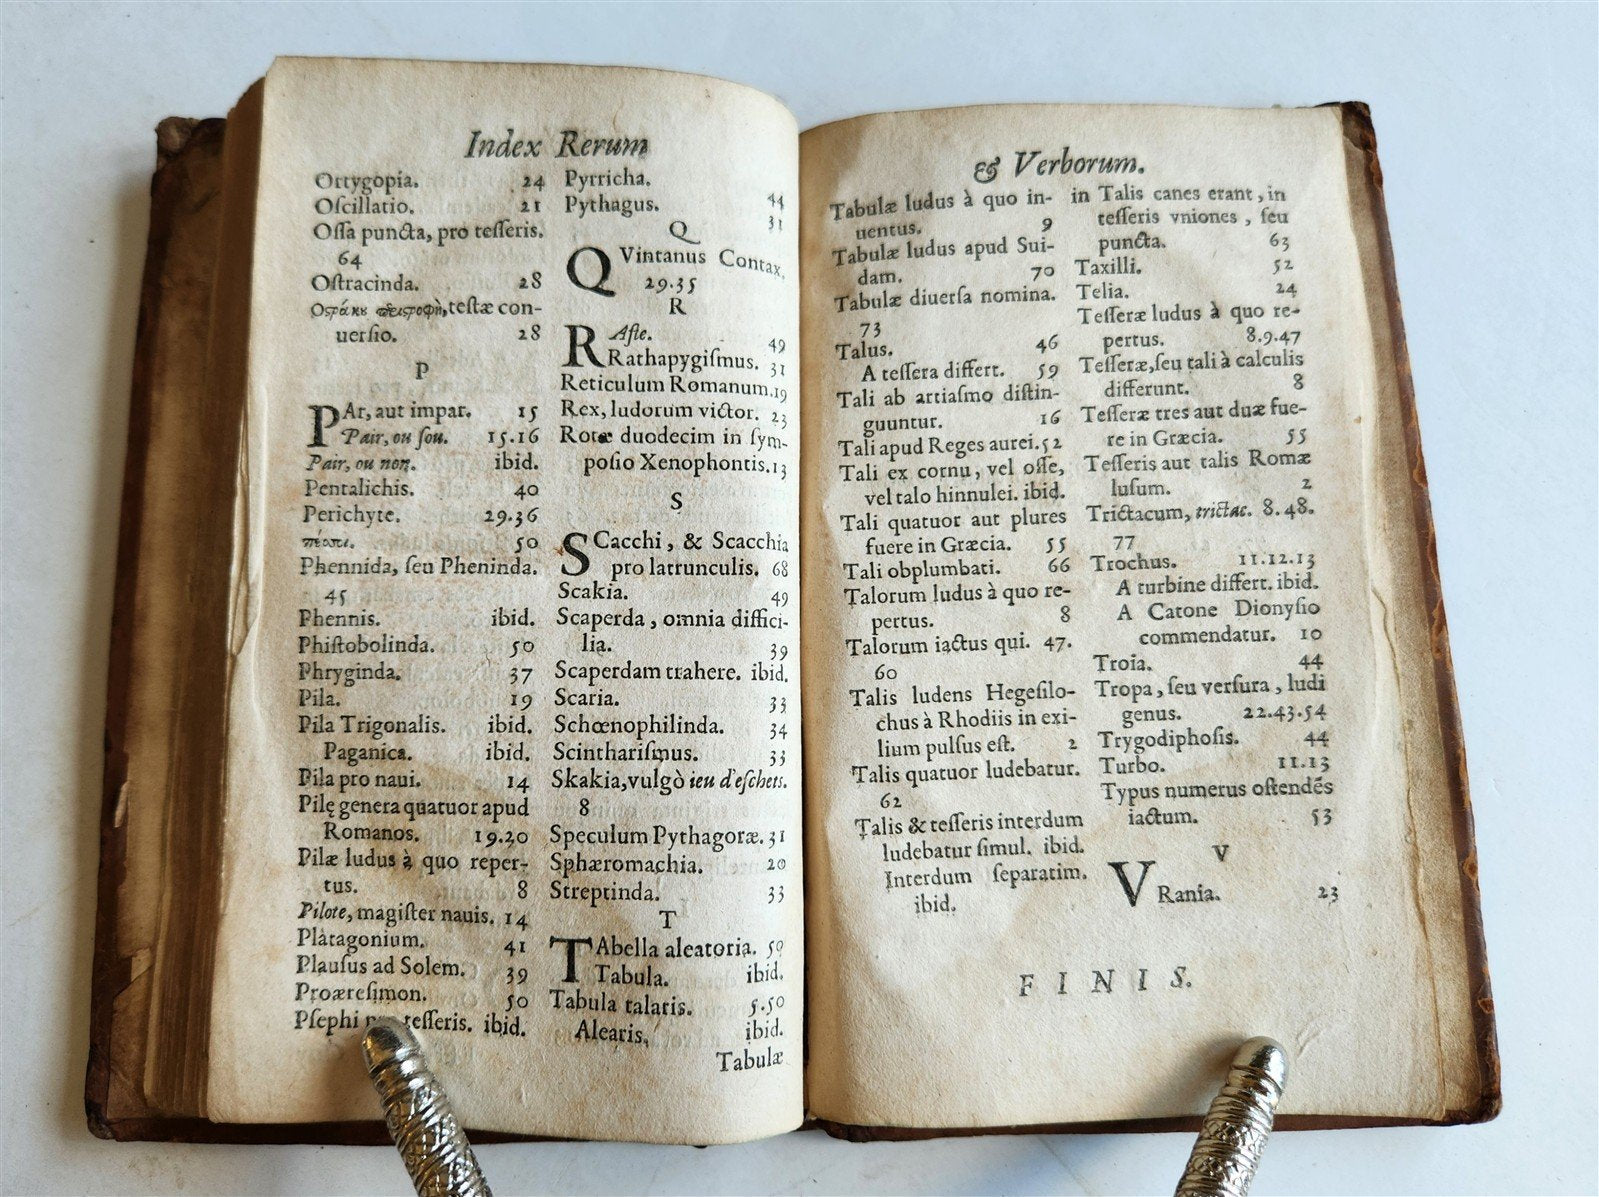 Index Rerum
Ortygopia. 24
Oſcillatio. 21
Oſſa puncta, pro teſſeris.
64
Oſtracinda. 28
teſtæ con-
uerſio. 28
P
PAr, aut impar. 15
Pair, ou ſou. 15.16
Pair, ou non. ibid.
Pentalichis. 40
Perichyte. 29.36
50
Phennida, ſeu Pheninda.
45
Phennis. ibid.
Phiſtobolinda. 50
Phryginda. 37
Pila. 19
Pila Trigonalis. ibid.
Paganica. ibid.
Pila pro naui. 14
Pilę genera quatuor apud
Romanos. 19.20
Pilæ ludus à quo reper-
tus. 8
Pilote, magiſter nauis. 14
Platagonium. 41
Plauſus ad Solem. 39
Proæreſimon. 50
Pſephi teſſeris. ibid.
Pyrricha. 44
Pythagus. 31
Q
QVintanus Contax.
29.35
R
RAſte. 49
Rathapygiſmus. 31
Reticulum Romanum. 19
Rex, ludorum victor. 23
Rotæ duodecim in ſym-
poſio Xenophontis. 13
S
SCacchi, & Scacchia
pro latrunculis. 68
Scakia. 49
Scaperda, omnia diffici-
lia. 39
Scaperdam trahere. ibid.
Scaria. 33
Schœnophilinda. 34
Scinthariſmus. 33
Skakia, vulgò ieu d'eſchets.
8
Speculum Pythagoræ. 31
Sphæromachia. 20
Streptinda. 33
T
TAbella aleatoria. 50
Tabula. ibid.
Tabula talaris. 5.50
Alearis. ibid.
Tabulæ
& Verborum.
Tabulæ ludus à quo in-
uentus. 9
Tabulæ ludus apud Sui-
dam. 70
Tabulæ diuerſa nomina.
73
Talus. 46
A teſſera differt. 59
Tali ab artiaſmo diſtin-
guuntur. 16
Tali apud Reges aurei. 52
Tali ex cornu, vel oſſe,
vel talo hinnulei. ibid.
Tali quatuor aut plures
fuere in Græcia. 55
Tali obplumbati. 66
Talorum ludus à quo re-
pertus. 8
Talorum iactus qui. 47.
60
Talis ludens Hegeſilo-
chus à Rhodiis in exi-
lium pulſus eſt. 2
Talis quatuor ludebatur.
62
Talis & teſſeris interdum
ludebatur ſimul. ibid.
Interdum ſeparatim.
ibid.
in Talis canes erant, in
teſſeris vniones, ſeu
puncta. 63
Taxilli. 52
Telia. 24
Teſſeræ ludus à quo re-
pertus. 8.9.47
Teſſeræ, ſeu tali à calculis
differunt. 8
Teſſeræ tres aut duæ fue-
re in Græcia. 55
Teſſeris aut talis Romæ
luſum. 2
Trictacum, trictac. 8.48.
77
Trochus. 11.12.13
A turbine differt. ibid.
A Catone Dionyſio
commendatur. 10
Troia. 44
Tropa, ſeu verſura, ludi
genus. 22.43.54
Trygodiphoſis. 44
Turbo. 11.13
Typus numerus oſtendēs
iactum. 53
V
VRania. 23
FINIS.